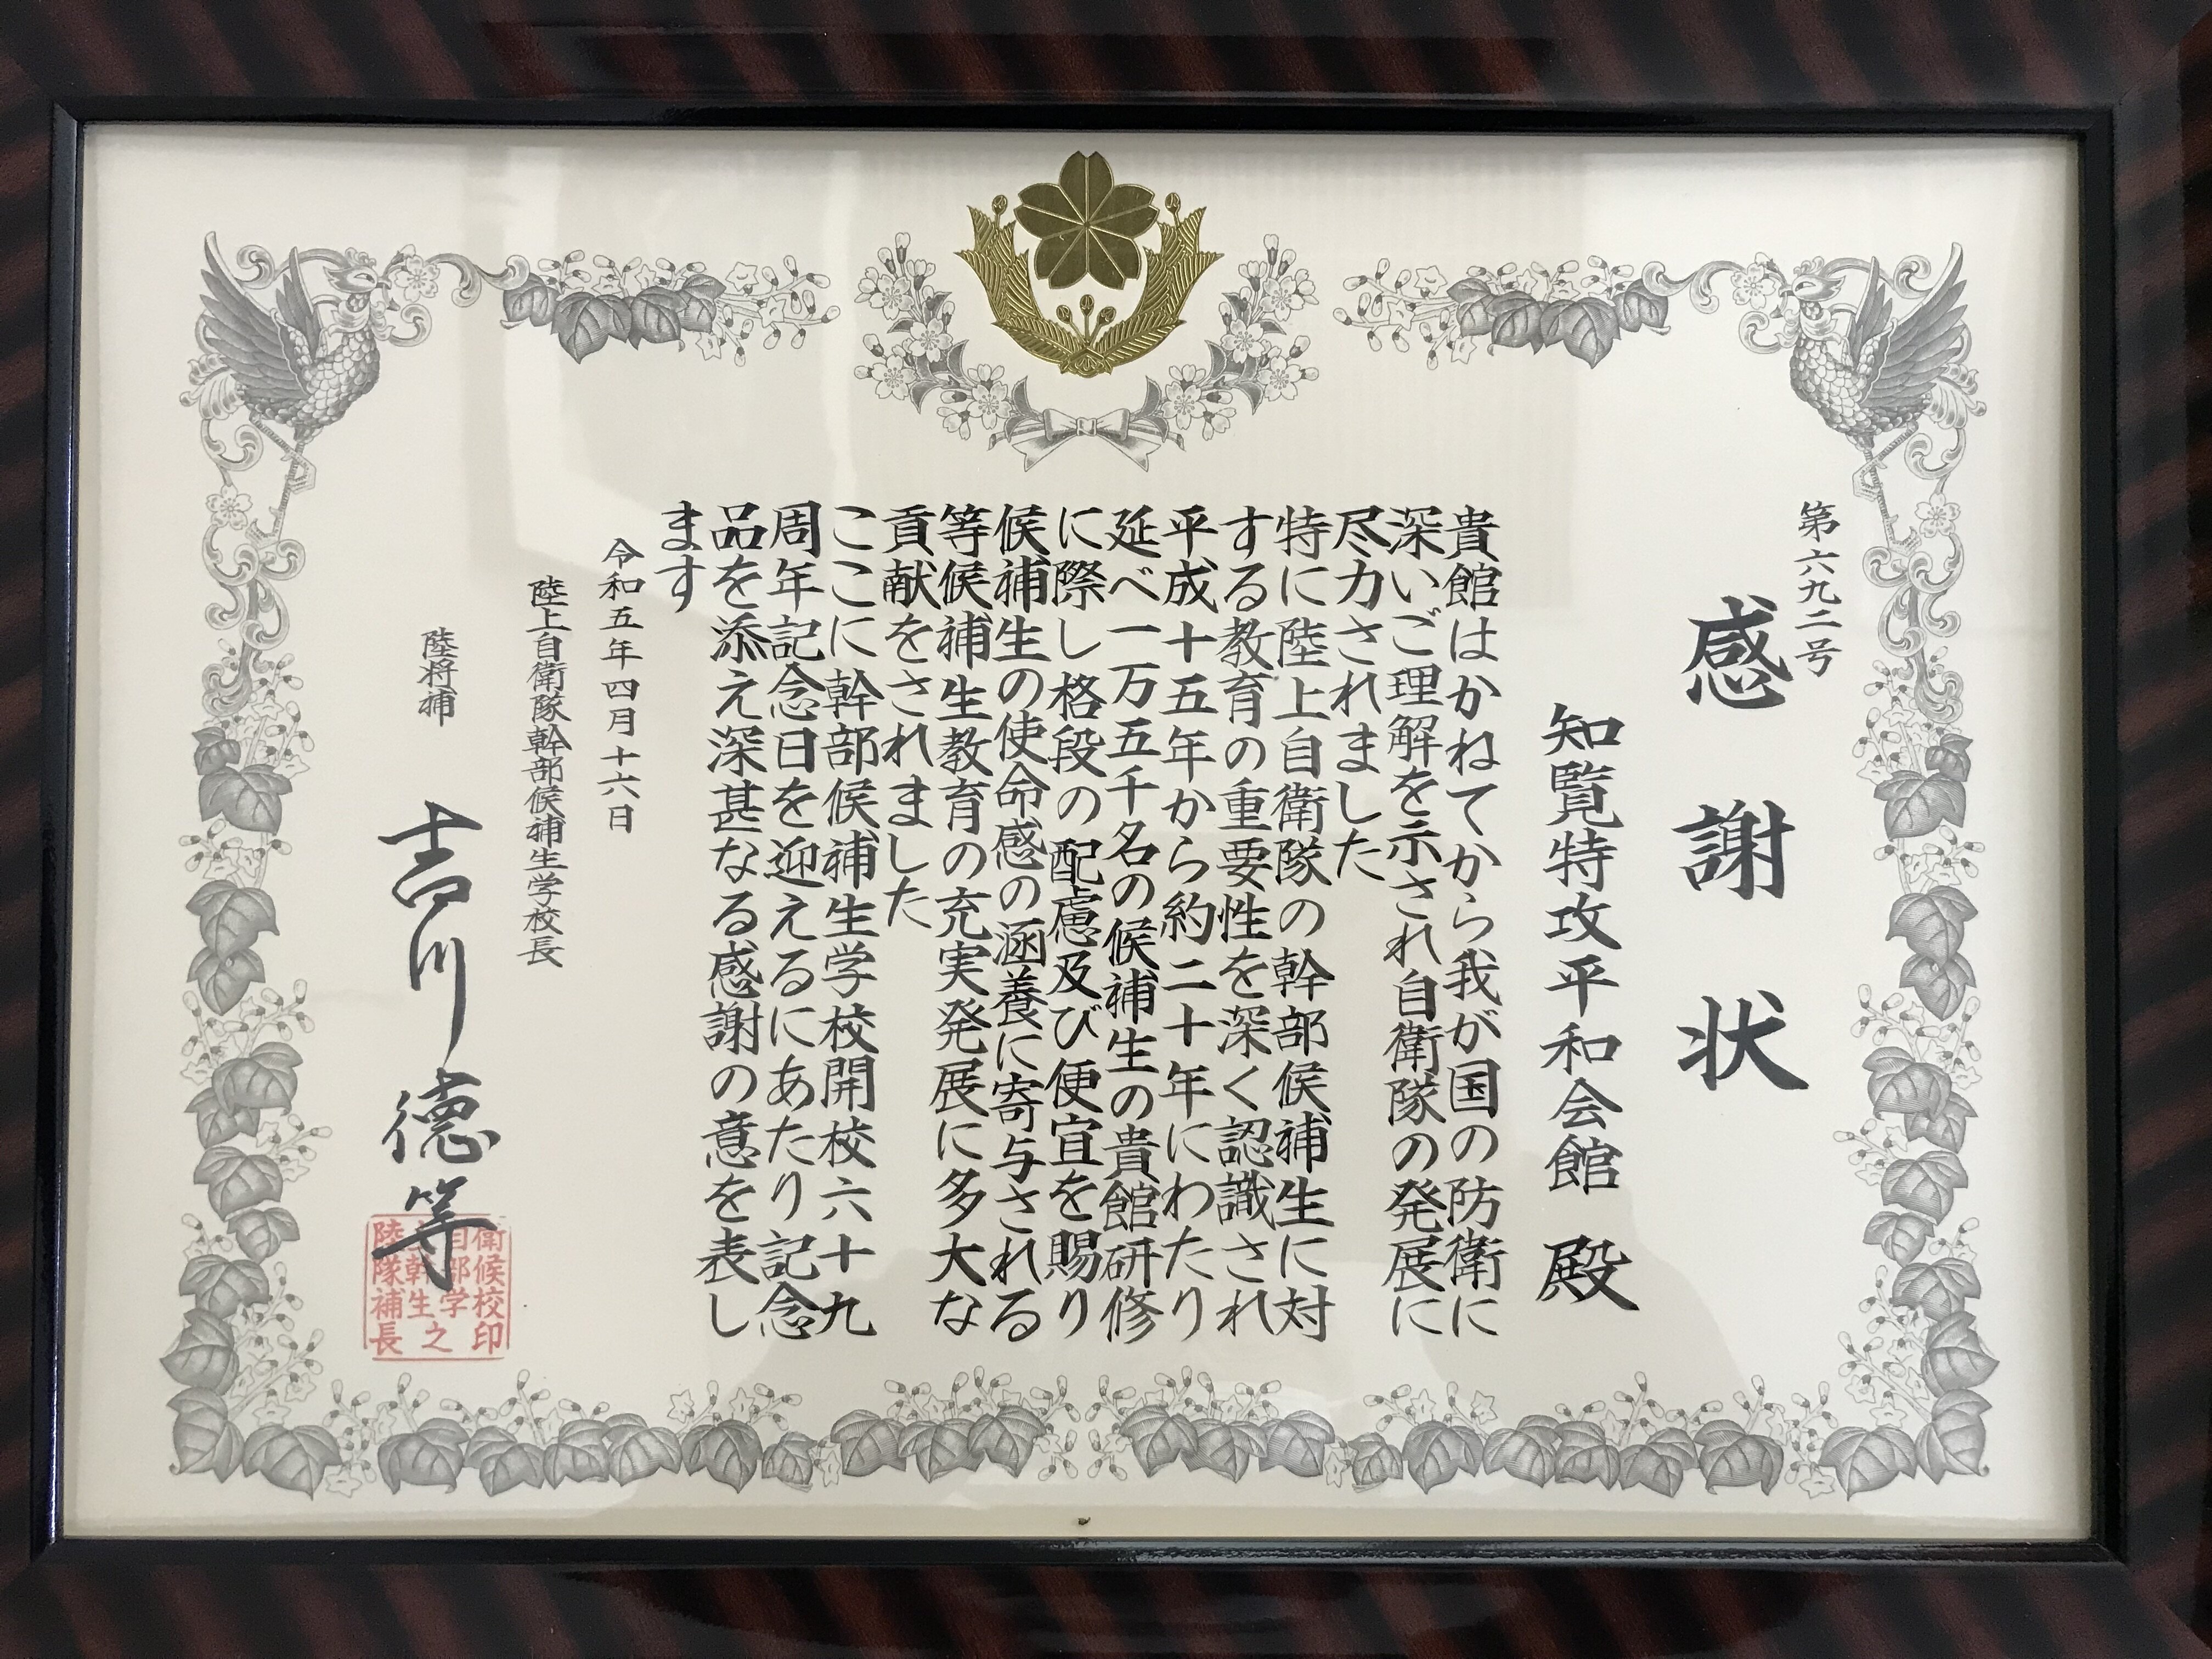 第六九二号
感謝状
知覧特攻平和会館 殿
貴館はかねてから我が国の防衛に
深いご理解を示され自衛隊の発展に
尽力されました
特に陸上自衛隊の幹部候補生に対
する教育の重要性を深く認識され
平成十五年から約二十年にわたり
延べ一万五千名の候補生の貴館研修
に際し格段の配慮及び便宜を賜り
候補生の使命感の涵養に寄与される
等候補生教育の充実発展に多大な
貢献をされました
ここに幹部候補生学校開校六十九
周年記念日を迎えるにあたり記念
品を添え深甚なる感謝の意を表し
ます
令和五年四月十六日
陸上自衛隊幹部候補生学校長
陸将補
吉川徳等
衛候校印
自部学
上幹生之
陸隊補長